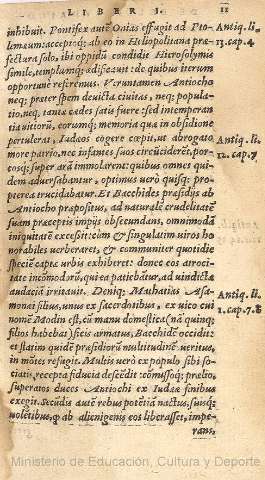 LIBER I. 11
inhibuit. Pontifex autē Onias effugit ad Pto-
lemæum: acceptoq; ab eo in Heliopolitana præ-
fectura solo, ibi oppidū condidit Hierosolymis
simile, templumq; ædificauit: de quibus iterum
opportunè referemus. Veruntamen Antiocho
neq; præter spem deuicta ciuitas, neq; popula-
tio, neq; tantæ cædes satis fuere: sed intemperan
tia uitiorū, eorumq; memoria quæ in obsidione
pertulerat, Iudæos cogere cœpit, ut abrogato
more patrio, nec infantes suos circūciderēt, por-
cosq; super arā immolarent: quibus omnes qui-
dem aduersabantur, optimus uerò quisq; pro-
pterea trucidabatur. Et Bacchides præsidijs ab
Antiocho præpositus, ad naturalē crudelitatē
suam præceptis impijs obsecundans, omnimodā
iniquitatē excessit: cùm & singulatim uiros ho
norabiles uerberaret, & communiter quotidie
speciē captæ urbis exhiberet: donec eos atroci-
tate incōmodorū, qui ea patiebātur, ad uindictæ
audaciā irritauit. Deniq; Mathatias Asa-
monei filius, unus ex sacerdotibus, ex uico cui
nomē Modin est, cū manu domestica (nā quinq;
filios habebat) sicis armatus, Bacchidē occidit:
et statim quidē præsidiorū multitudinē ueritus,
in mōtes refugit. Multis uerò ex populo sibi so-
ciatis, recepta fiducia descēdit: cōmissoq; prælio,
superatos duces Antiochi ex Iudææ finibus
exegit. Secūdis autē rebus potētiā nactus, suisq;
uolētibus, q̄ ab alienigenis eos liberasset, impe-
rans,
Antiq. li.
13. cap. 4
Antiq. li.
12. cap. 7
Antiq. li.
1. cap. 7. 8
Ministerio de Educación, Cultura y Deporte